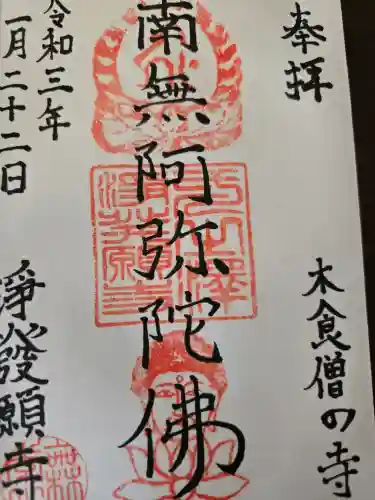 奉拝
木食僧の寺
南無阿弥陀佛
令和三年
一月二十二日
浄發願寺